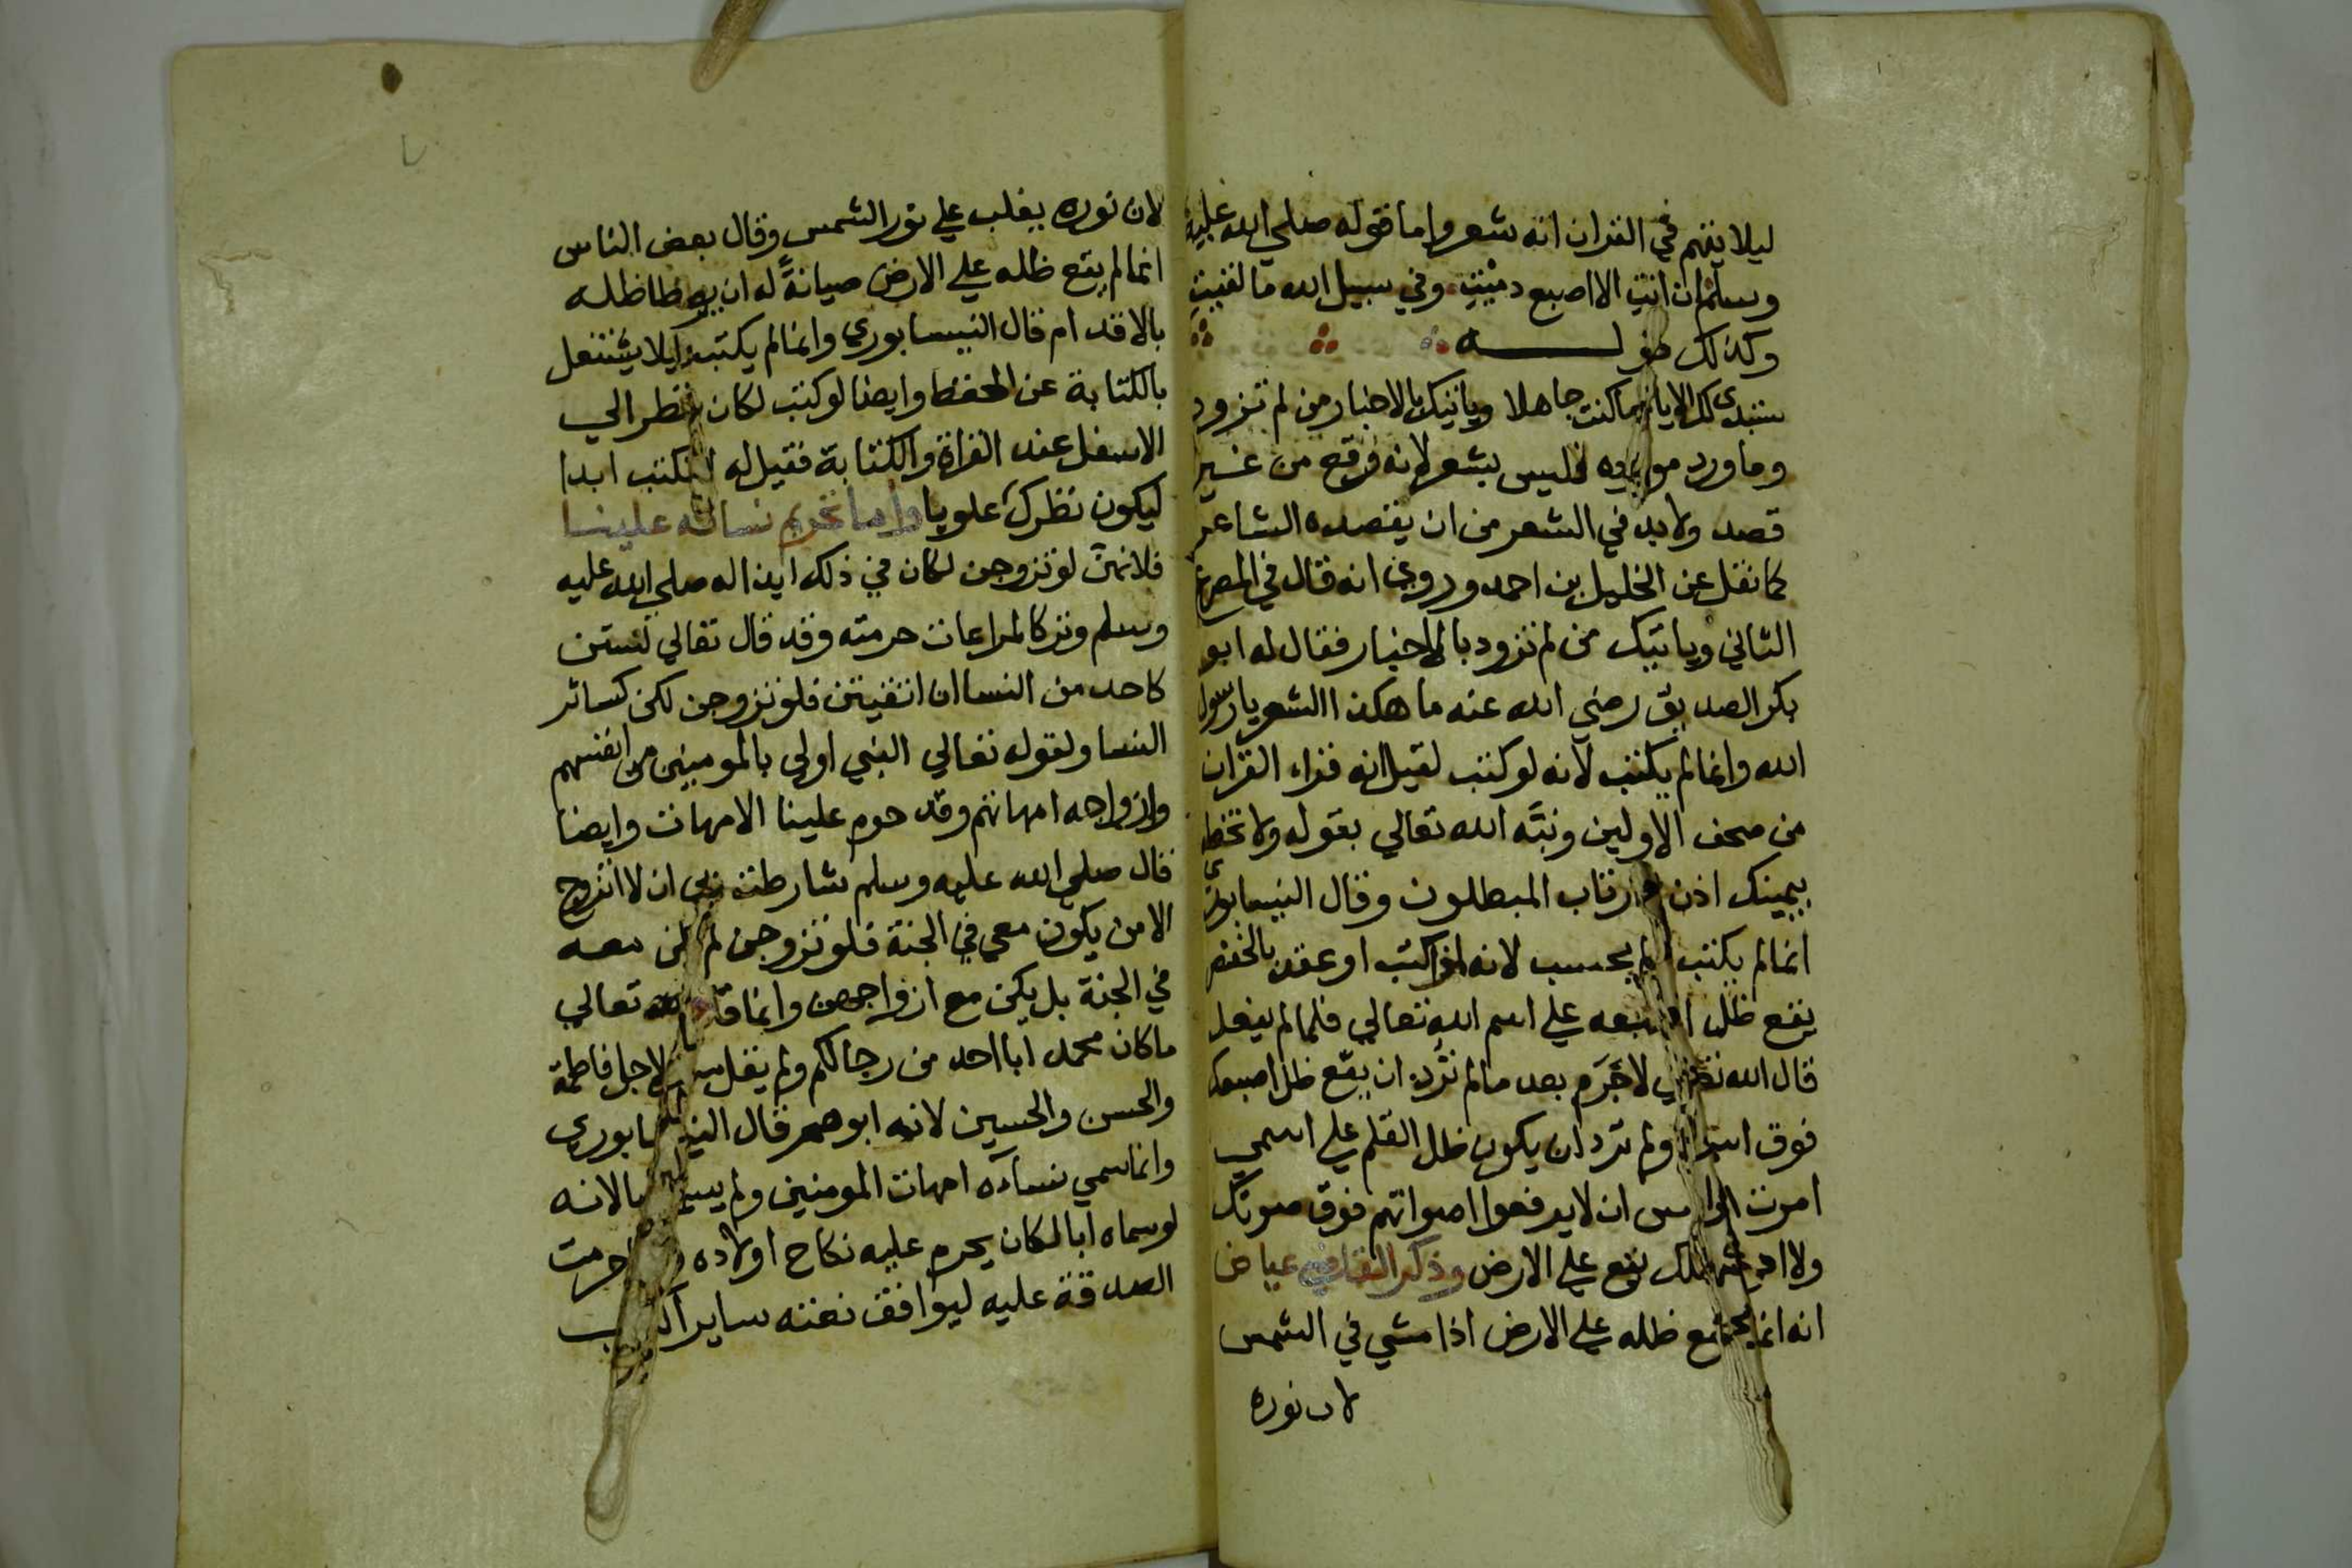 ليلا يتهم في القران انه شعر واما قوله صلي الله عليه
وسلم ان انتِ الا اصبع دميتِ وفي سبيل الله ما لقيتِ
وكذلك قولـــــه
ستبدي لك الايام ما كنت جاهلا وياتيك بالاخبار من لم تزود
وما ورد موزوه فليس بشعر لانه وقع من غير
قصد ولابد في الشعر من ان يقصده الشاعر
كما نقل عن الخليل بن احمد وروي انه قال في المصرع
الثاني وياتيك من لم تزود بالاخبار فقال له ابو
بكر الصديق رضي الله عنه ما هكذا الشعر يا رسول
الله وانما لم يكتب لانه لو كتب لقيل انه قراء القران
من صحف الاولين ونبّه الله تعالي بقوله ولا تخطه
بيمينك اذن لارتاب المبطلون وقال النيسابوري
انما لم يكتب ولم يحسب لانه اذا كتب او عقد بالخنصر
يقع ظل اصبعه علي اسم الله تعالي فلما لم يفعل
قال الله تعالي لا جَرَم بعد ما لم تُرِد ان يقع ظل اصبعك
فوق اسمي ولم ترد ان يكون ظل القلم علي اسمي
امرت الناس ان لا يرفعوا اصواتهم فوق صوتك
ولا ادع ظلك يقع علي الارض وذكر القاضي عياض
انه انما لم يقع ظله علي الارض اذا مشي في الشمس
لان نوره
لان نوره يغلب علي نور الشمس وقال بعض الناس
انما لم يقع ظله علي الارض صيانةً له ان يوطا ظله
بالاقدام قال النيسابوري وانما لم يكتب ليلا يشتغل
بالكتابة عن الحفظ وايضا لو كتب لكان ينظر الي
الاسفل عند القراة والكتابة فقيل له لا تكتب ابدا
ليكون نظرك علويا واما تحريم نسائه علينا
فلانهنّ لو تزوجن لكان في ذلك ايذا له صلي الله عليه
وسلم وتركا لمراعات حرمته وقد قال تعالي لستن
كاحد من النسا ان اتقيتن فلو تزوجن لكن كسائر
النسا ولقوله تعالي النبي اولي بالمومنين من انفسهم
وازواجه امهاتهم وقد حرم علينا الامهات وايضا
قال صلي الله عليه وسلم شارطت ربي ان لا اتزوج
الا من يكون معي في الجنة فلو تزوجن لم يكن معه
في الجنة بل يكن مع ازواجهن وانما قال الله تعالي
ما كان محمد ابا احد من رجالكم ولم يقل لاجل فاطمة
والحسن والحسين لانه ابوهم قال النيسابوري
وانما سمي نساءه امهات المومنين ولم يسم ابا لانه
لو سماه ابا لكان يحرم عليه نكاح اولاده حرمت
الصدقة عليه ليوافق نعته ساير الكتب